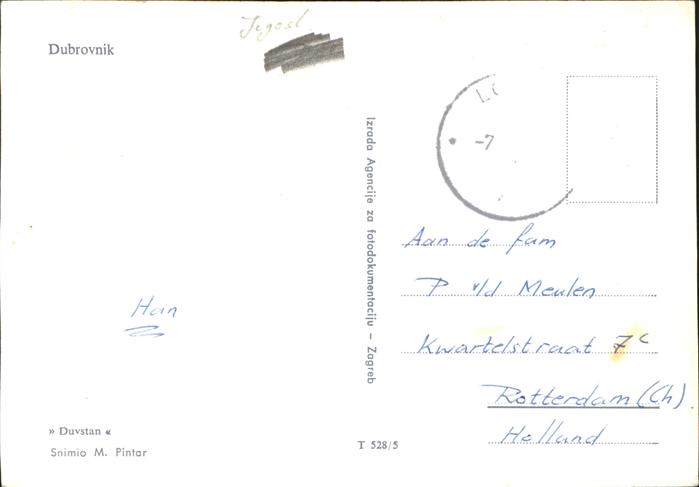 Jugosl
Dubrovnik
-7
Izrada Agencije za fotodokumentaciju – Zagreb
Aan de fam
P v/d Meulen
Kwartelstraat 7c
Rotterdam (Ch)
Holland
Han
» Duvstan «
Snimio M. Pintar
T 528/5